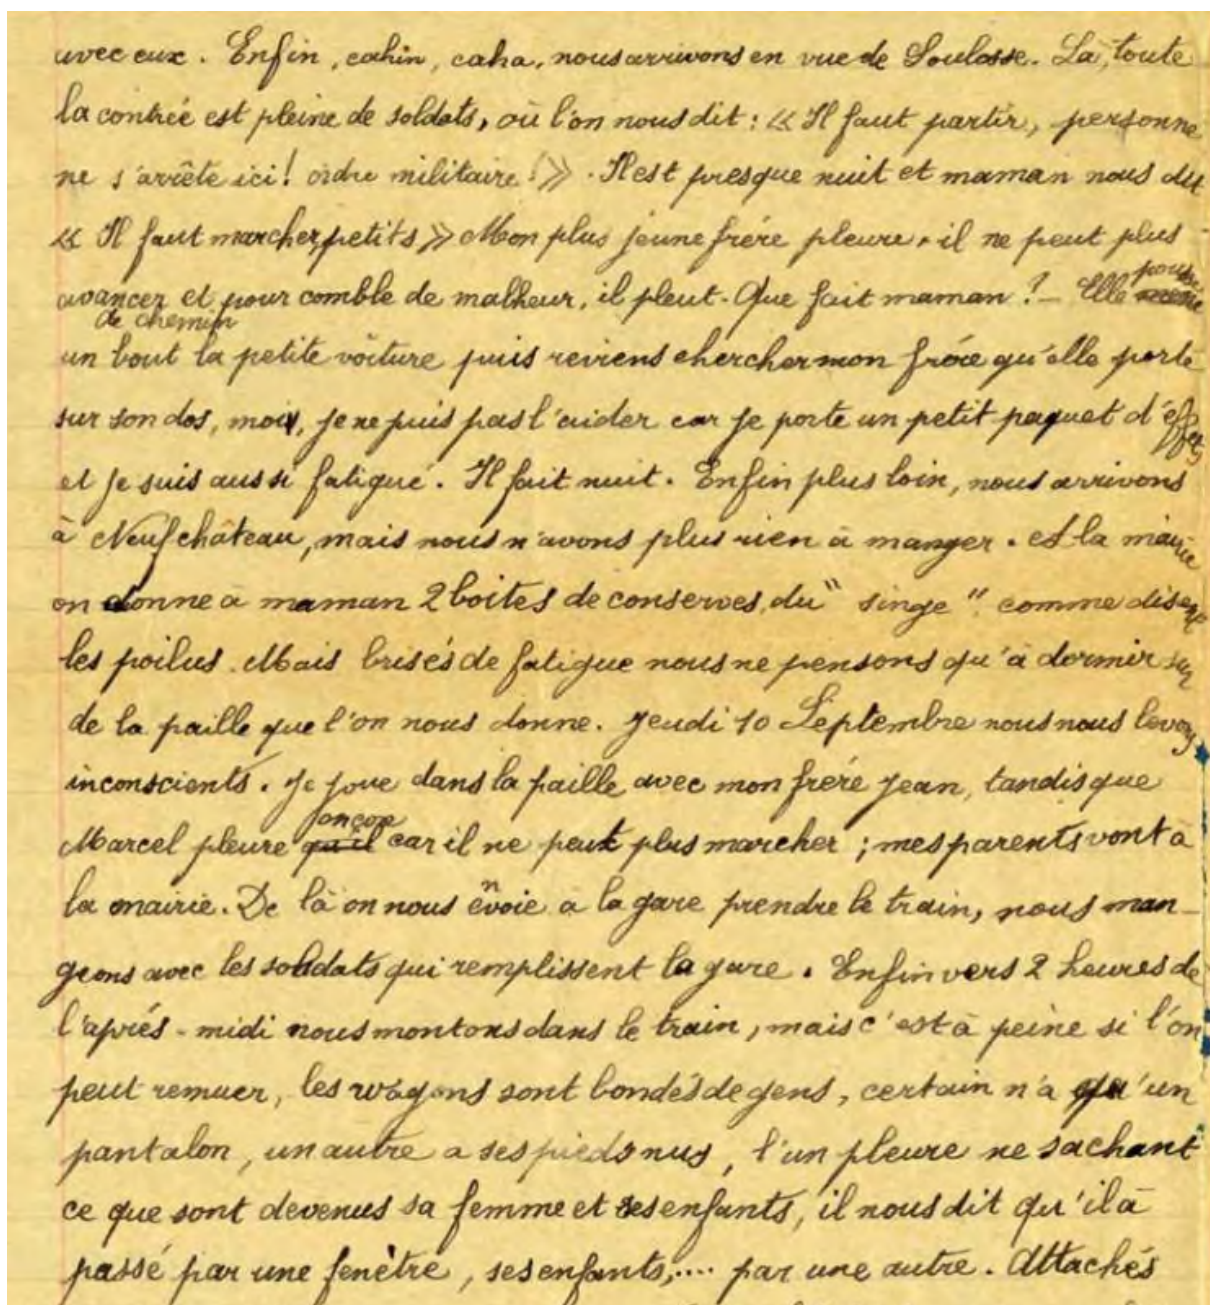 avec eux. Enfin, cahin, caha, nous arrivons en vue de Soulosse. Là, toute
la contrée est pleine de soldats, où l'on nous dit : « Il faut partir, personne
ne s'arrête ici! ordre militaire!». Il est presque nuit et maman nous dit
« Il faut marcher, petits » Mon plus jeune frère pleure, il ne peut plus
avancer et pour comble de malheur, il pleut. Que fait maman ? — Elle pousse
de chemin
un bout la petite voiture puis reviens chercher mon frère qu'elle porte
sur son dos, moi, je ne puis pas l'aider car je porte un petit paquet d'effets
et je suis aussi fatigué. Il fait nuit. Enfin plus loin, nous arrivons
à Neufchâteau, mais nous n'avons plus rien à manger. A la mairie
on donne à maman 2 boîtes de conserves, du " singe " comme disent
les poilus. Mais brisés de fatigue nous ne pensons qu'à dormir sur
de la paille que l'on nous donne. Jeudi 10 Septembre nous nous levons
inconscients. Je joue dans la paille avec mon frère Jean, tandis que
Marcel pleure qu'il car il ne peut plus marcher ; mes parents vont à
la mairie. De là on nous envoie à la gare prendre le train, nous man-
geons avec les soldats qui remplissent la gare. Enfin vers 2 heures de
l'après-midi nous montons dans le train, mais c'est à peine si l'on
peut remuer, les wagons sont bondés de gens, certain n'a qu'un
pantalon, un autre a ses pieds nus, l'un pleure ne sachant
ce que sont devenus sa femme et ses enfants, il nous dit qu'il à
passé par une fenêtre, ses enfants,.... par une autre. Attachés